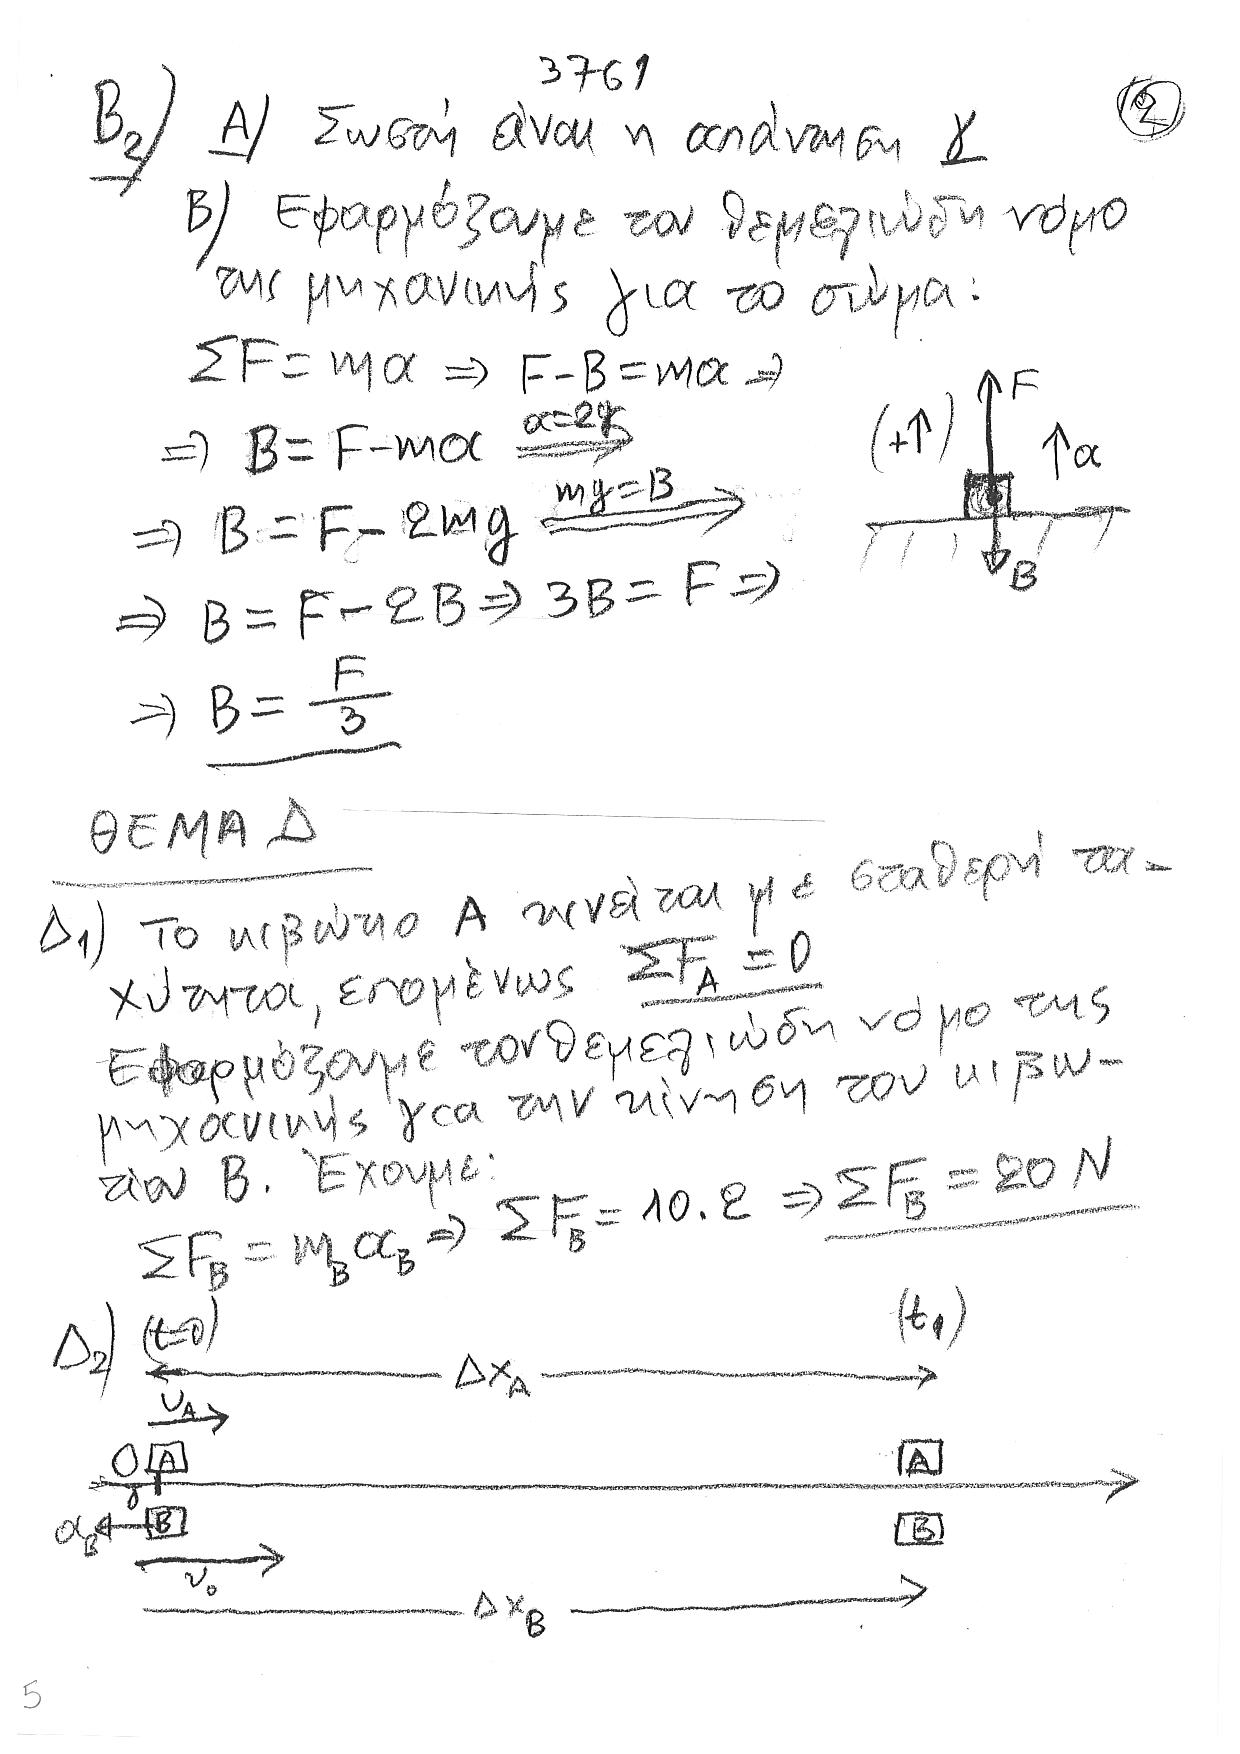 3761
②
Β₂) Α) Σωστή είναι η απάντηση γ
Β) Εφαρμόζουμε τον θεμελιώδη νόμο
της μηχανικής για το σώμα:
ΣF = mα ⇒ F - B = mα ⇒
⇒ B = F - mα  α=2g ⇒
⇒ B = F - 2mg  mg=B ⇒
⇒ B = F - 2B ⇒ 3B = F ⇒
⇒ B = F/3
(+↑) F ↑α
B
ΘΕΜΑ Δ
Δ₁) Το κιβώτιο Α κινείται με σταθερή τα-
χύτητα, επομένως ΣF_A = 0
Εφαρμόζουμε τον θεμελιώδη νόμο της
μηχανικής για την κίνηση του κιβω-
τίου Β. Έχουμε:
ΣF_B = m_B α_B ⇒ ΣF_B = 10.2 ⇒ ΣF_B = 20 N
Δ₂) (t=0) (t₁)
Δx_A
υ_A
Ο A A
α_B B B
υ₀
Δx_B
5